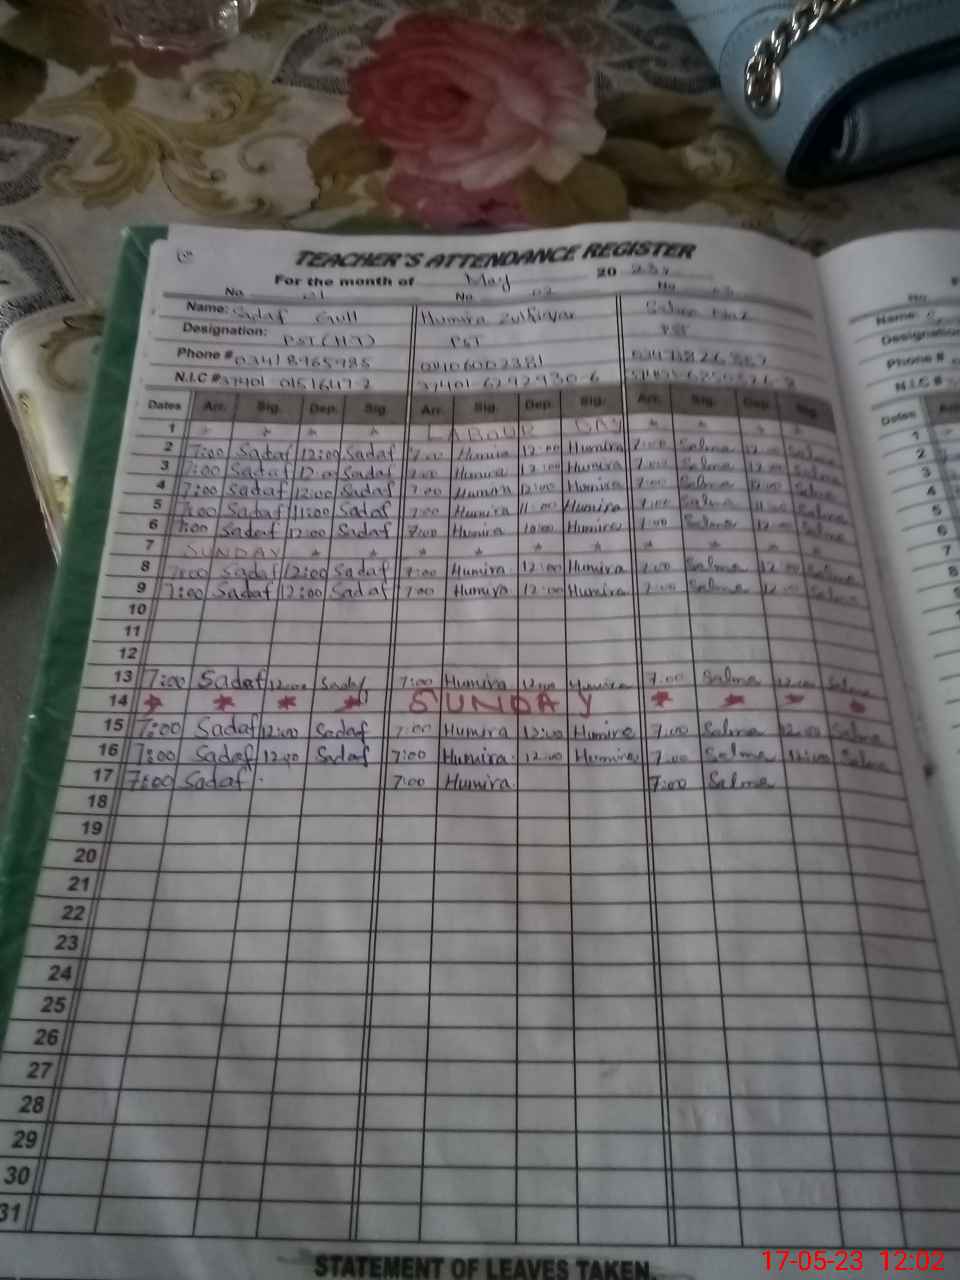 TEACHER'S ATTENDANCE REGISTER
For the month of May 20 23
No. 01 No. 02 No. 03
Name: Sadaf Gull Humira Zulfiqar Salma Naz
Designation: PST (H.T) PST PST
Phone #
N.I.C #
Dates Arr. Sig. Dep. Sig. Arr. Sig. Dep. Sig. Arr. Sig. Dep. Sig.
1 * * * * LABOUR DAY * * * *
2 7:00 Sadaf 12:00 Sadaf 7:00 Humira 12:00 Humira 7:00 Salma 12:00 Salma
3 7:00 Sadaf 12:00 Sadaf 7:00 Humira 12:00 Humira 7:00 Salma 12:00 Salma
4 7:00 Sadaf 12:00 Sadaf 7:00 Humira 12:00 Humira 7:00 Salma 12:00 Salma
5 7:00 Sadaf 11:00 Sadaf 7:00 Humira 11:00 Humira 7:00 Salma 11:00 Salma
6 7:00 Sadaf 12:00 Sadaf 7:00 Humira Humira 7:00 Salma Salma
7 SUNDAY * * * * * * * * * *
8 7:00 Sadaf 12:00 Sadaf 7:00 Humira 12:00 Humira 7:00 Salma 12:00 Salma
9 7:00 Sadaf 12:00 Sadaf 7:00 Humira 12:00 Humira 7:00 Salma 12:00 Salma
10
11
12
13 7:00 Sadaf 12:00 Sadaf 7:00 Humira 12:00 Humira 7:00 Salma 12:00 Salma
14 * * * * SUNDAY * * * *
15 7:00 Sadaf 12:00 Sadaf 7:00 Humira 12:00 Humira 7:00 Salma 12:00 Salma
16 7:00 Sadaf 12:00 Sadaf 7:00 Humira 12:00 Humira 7:00 Salma 12:00 Salma
17 7:00 Sadaf 7:00 Humira 7:00 Salma
18
19
20
21
22
23
24
25
26
27
28
29
30
31
STATEMENT OF LEAVES TAKEN.
No.
Name:
Designation
Phone #
N.I.C #
Dates
1
2
3
4
5
6
7
8
17-05-23 12:02